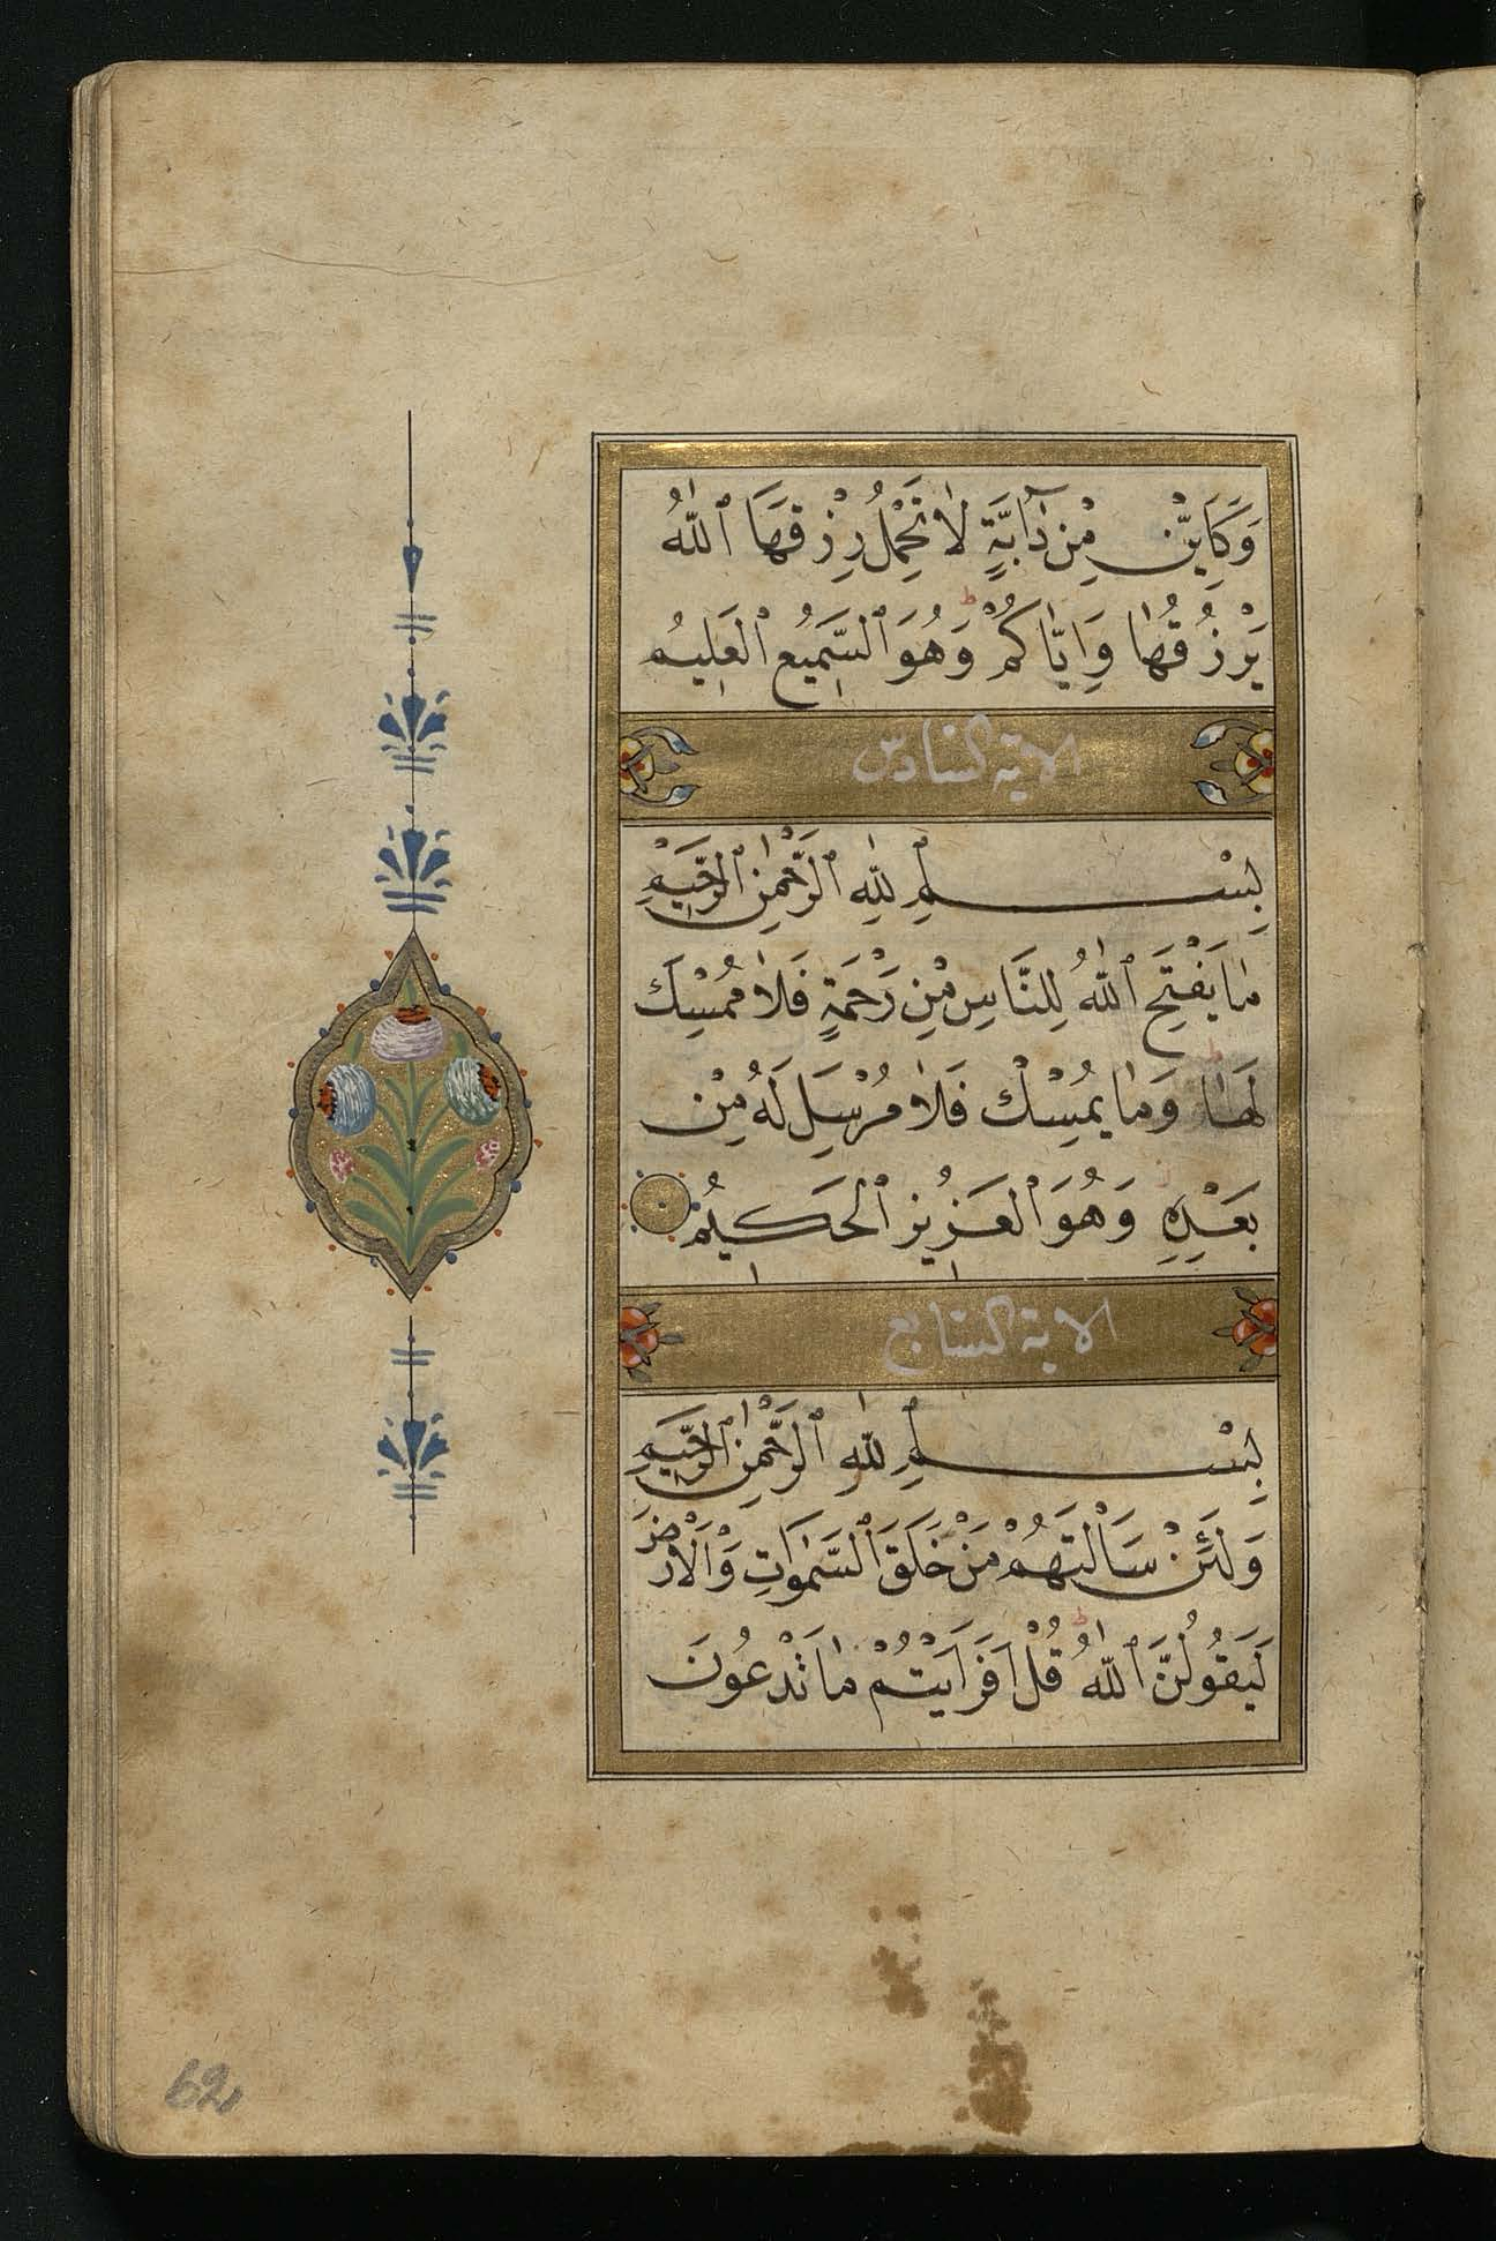 وَكَاَيِّنْ مِنْ دَٓابَّةٍ لَا تَحْمِلُ رِزْقَهَا اَللّٰهُ
يَرْزُقُهَا وَاِيَّاكُمْ ط وَهُوَ السَّمِيعُ الْعَلِيمُ
الاية السادس
بِسْمِ اللّٰهِ الرَّحْمٰنِ الرَّحِيمِ
مَا يَفْتَحِ اللّٰهُ لِلنَّاسِ مِنْ رَحْمَةٍ فَلَا مُمْسِكَ
لَهَا ط وَمَا يُمْسِكْ فَلَا مُرْسِلَ لَهُ مِنْ
بَعْدِهِ وَهُوَ الْعَزِيزُ الْحَكِيمُ
الاية السابع
بِسْمِ اللّٰهِ الرَّحْمٰنِ الرَّحِيمِ
وَلَئِنْ سَاَلْتَهُمْ مَنْ خَلَقَ السَّمٰوَاتِ وَالْاَرْضَ
لَيَقُولُنَّ اللّٰهُ ط قُلْ اَفَرَاَيْتُمْ مَا تَدْعُونَ
62